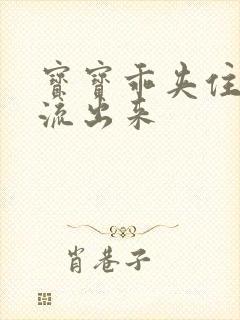 寶寶乖夹住
流出来
肖巷子